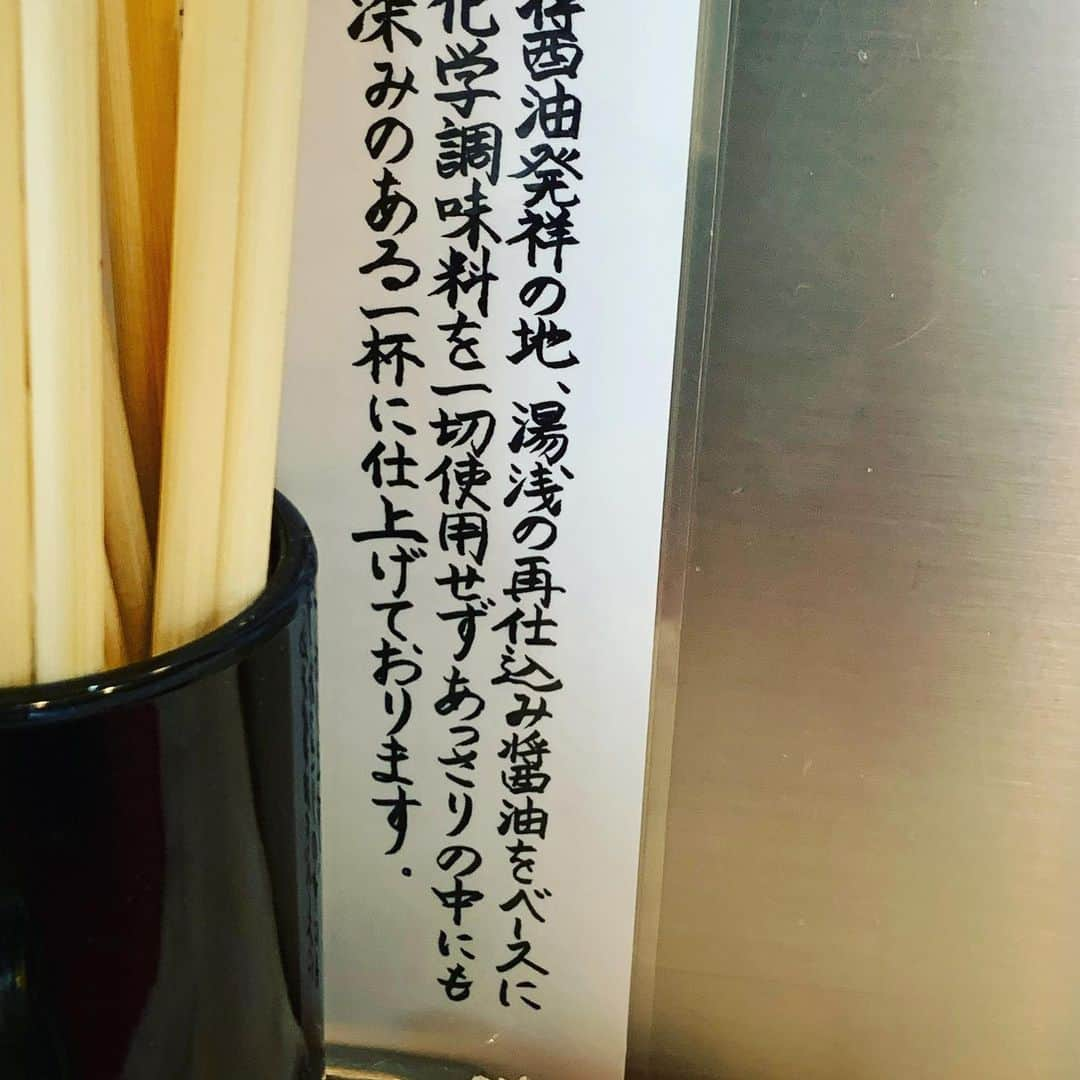 醤油発祥の地、湯浅の再仕込み醤油をベースに
化学調味料を一切使用せずあっさりの中にも
深みのある一杯に仕上げております.